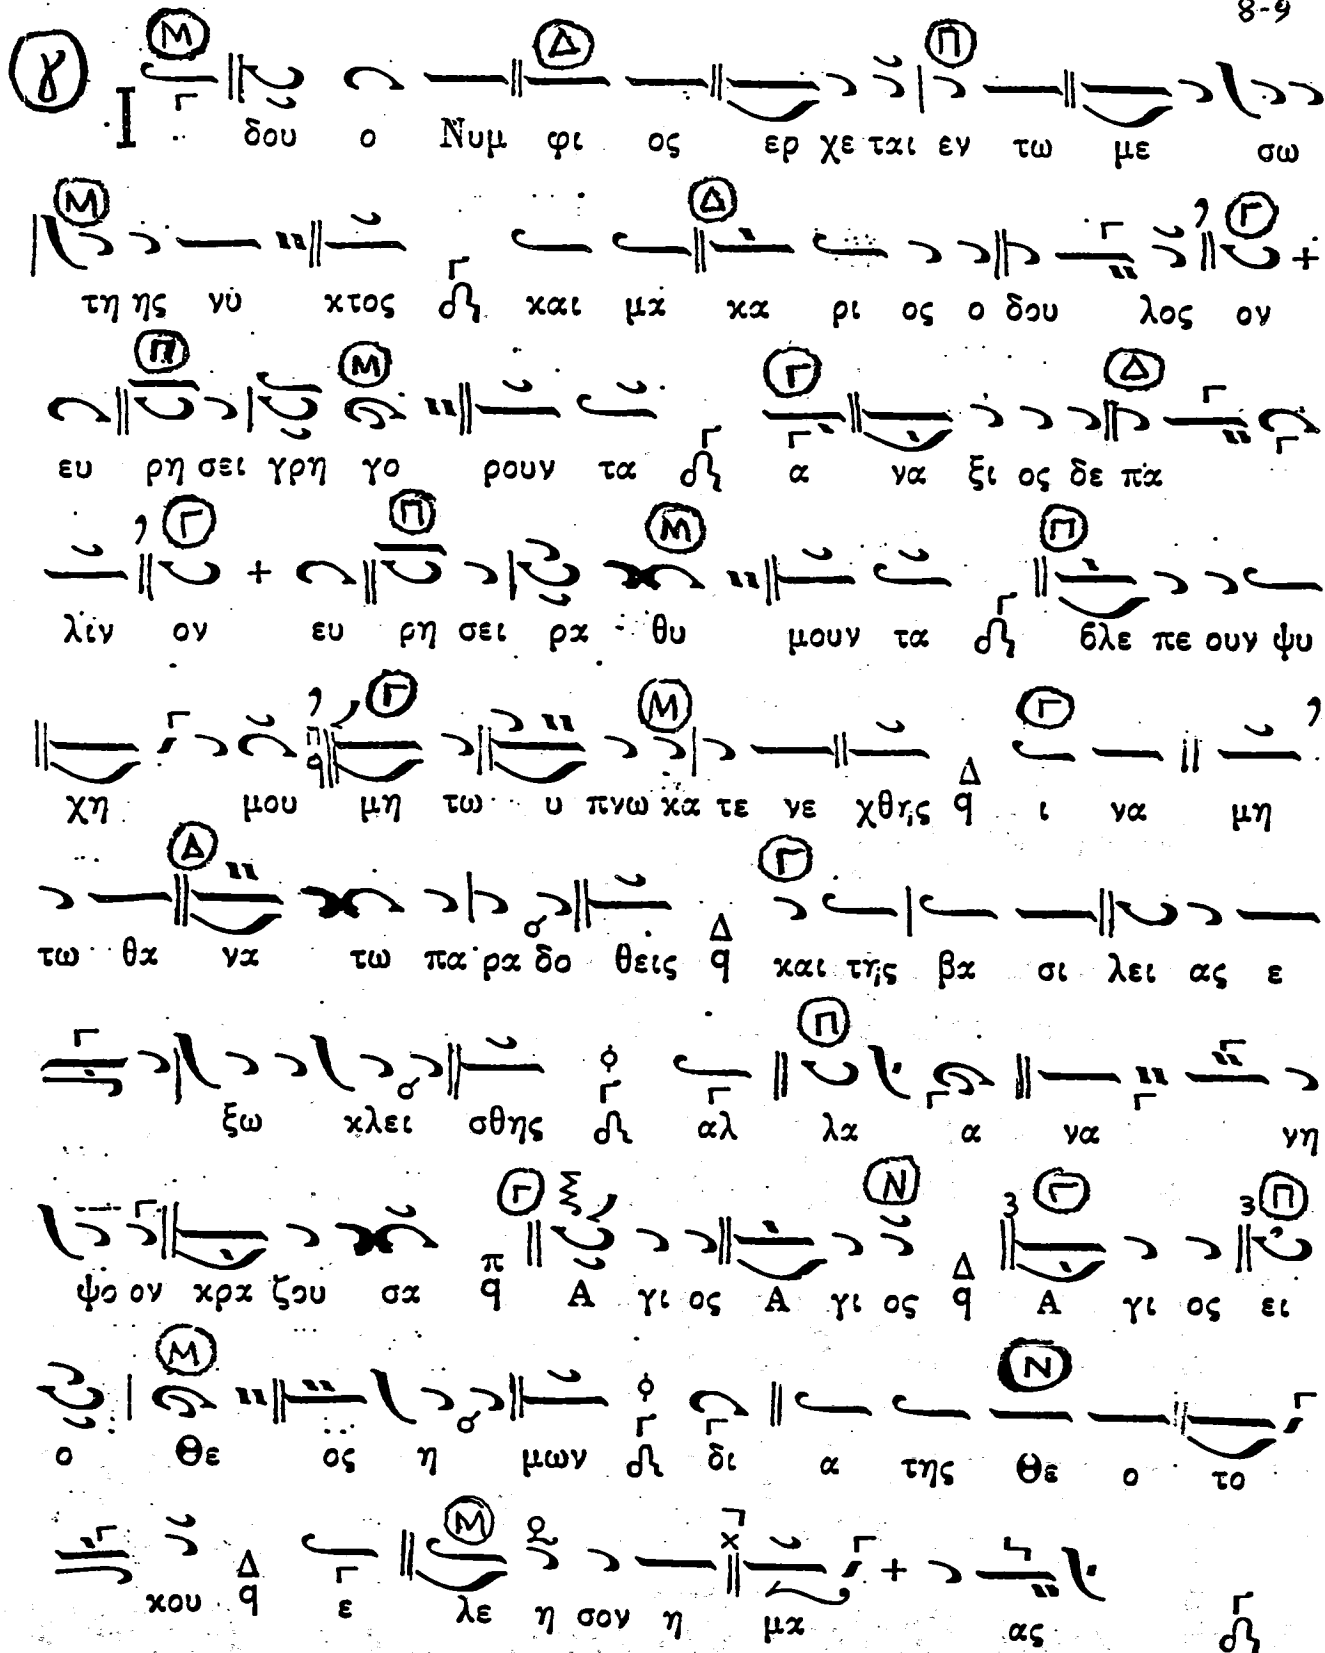 8-9
γ Μ Δ Π
Ι δου ο Νυμ φι ος ερ χε ται εν τω με σω
Μ Δ Γ
τη ης νυ κτος και μα κα ρι ος ο δου λος ον
Π Μ Γ Δ
ευ ρη σει γρη γο ρουν τα α να ξι ος δε πα
Γ Π Μ Π
λιν ον ευ ρη σει ρα θυ μουν τα βλε πε ουν ψυ
Γ Μ Γ
χη μου μη τω υ πνω κα τε νε χθης ι να μη
Δ Γ
τω θα να τω πα ρα δο θεις και της βα σι λει ας ε
Π
ξω κλει σθης αλ λα α να νη
Γ Ν Γ Π
ψο ον κρα ζου σα Α γι ος Α γι ος Α γι ος ει
Μ Ν
ο Θε ος η μων δι α της Θε ο το
Μ
κου ε λε η σον η μα ας